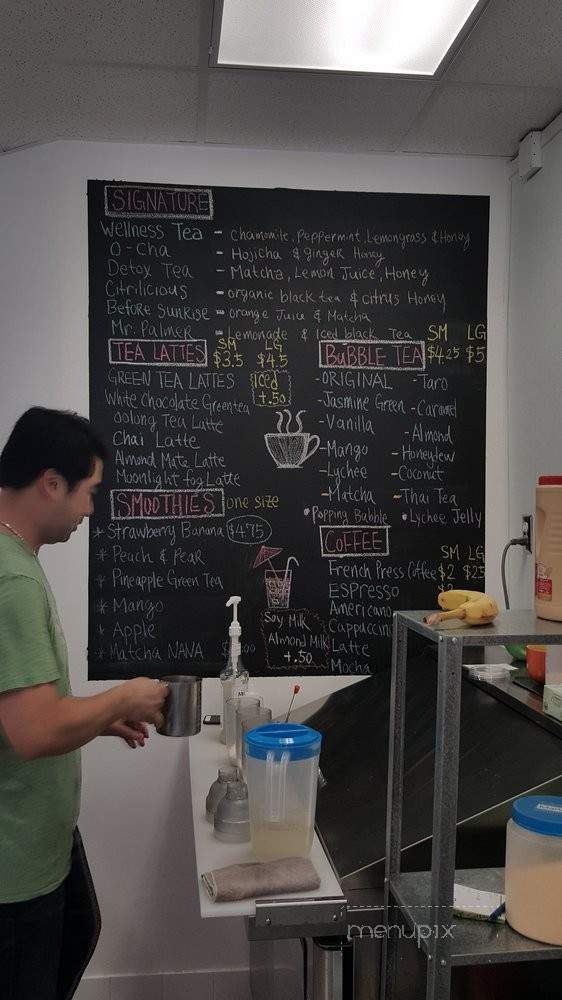 SIGNATURE
Wellness Tea - Chamomile, Peppermint, Lemongrass & Honey
O-Cha - Hojicha & Ginger Honey
Detox Tea - Matcha, Lemon Juice, Honey
Citrilicious - organic black tea & citrus Honey
Before Sunrise - orange Juice & Matcha
Mr. Palmer - Lemonade & Iced black Tea
TEA LATTES SM $3.5 LG $4.5
GREEN TEA LATTES
Iced
+.50
White Chocolate Greentea
Oolong Tea Latte
Chai Latte
Almond Mate Latte
Moonlight fog Latte
SMOOTHIES one size
* Strawberry Banana $4.75
* Peach & Pear
* Pineapple Green Tea
* Mango
* Apple
* Matcha NANA
BuBBLE TEA SM $4.25 LG $5
- ORIGINAL - Taro
- Jasmine Green - Caramel
- Vanilla - Almond
- Mango - Honeydew
- Lychee - Coconut
- Matcha - Thai Tea
• Popping Bubble • Lychee Jelly
COFFEE
SM LG
French Press Coffee $2 $2.5
ESPRESSO
Americano
Cappuccino
Latte
Mocha
Soy Milk
Almond Milk
+.50
menupix